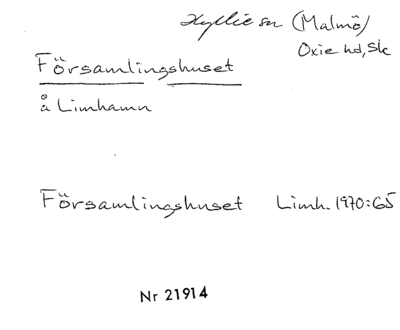 Hyllie sn (Malmö)
Oxie hd, Sk
Församlingshuset
å Limhamn
Församlingshuset Limh. 1970:65
Nr 21914